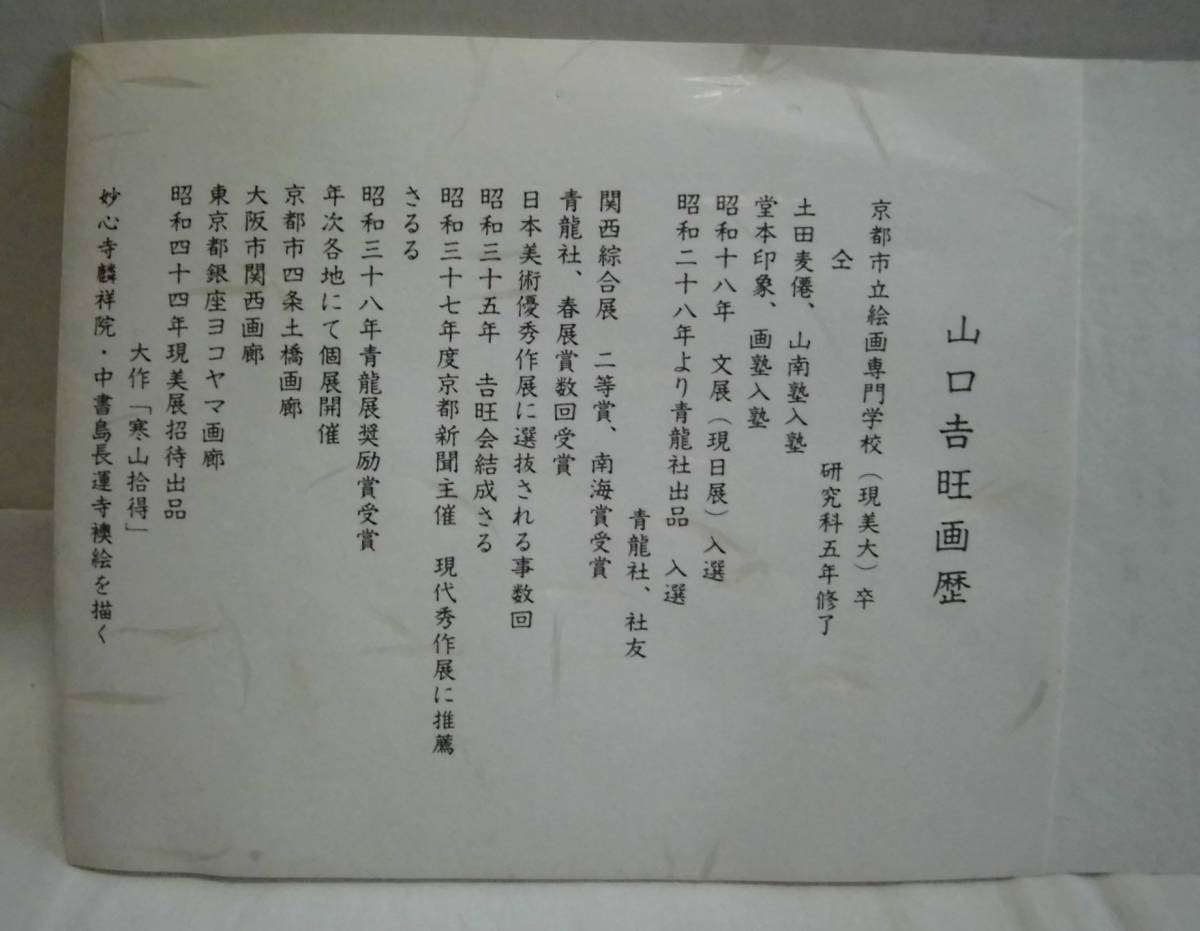 山口𠮷旺画歴
京都市立絵画専門学校（現美大）卒
仝　研究科五年修了
土田麦僊、山南塾入塾
堂本印象、画塾入塾
昭和十八年　文展（現日展）入選
昭和二十八年より青龍社出品　入選
青龍社、社友
関西綜合展　二等賞、南海賞受賞
青龍社、春展賞数回受賞
日本美術優秀作展に選抜される事数回
昭和三十五年　𠮷旺会結成さる
昭和三十七年度京都新聞主催　現代秀作展に推薦
さるる
昭和三十八年青龍展奨励賞受賞
年次各地にて個展開催
京都市四条土橋画廊
大阪市関西画廊
東京都銀座ヨコヤマ画廊
昭和四十四年現美展招待出品
大作「寒山拾得」
妙心寺麟祥院・中書島長運寺襖絵を描く